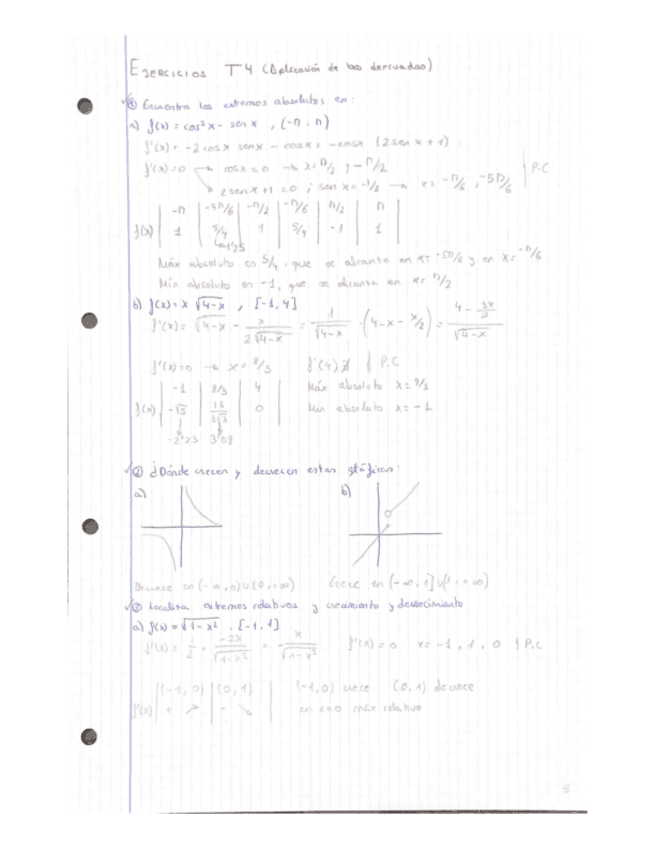 EJERCICIOS T4 (Aplicación de las derivadas)
① Encuentra los extremos absolutos en:
a) f(x) = cos²x - sen x , (-π, π)
f'(x) = -2 cos x sen x - cos x = -cos x (2 sen x + 1)
f'(x) = 0 → cos x = 0 → x = π/2 ; -π/2
2 sen x + 1 = 0 ; sen x = -1/2 → x = -π/6 , -5π/6 | P.C
-π | -5π/6 | -π/2 | -π/6 | π/2 | π
f(x) | 1 | 5/4 | 1 | 5/4 | -1 | 1
Máx absoluto es 5/4, que se alcanza en x = -5π/6 y en x = -π/6
Mín absoluto es -1, que se alcanza en x = π/2
b) f(x) = x √4-x , [-1, 4]
f'(x) = √4-x - x / 2√4-x = 1 / √4-x · (4 - x - x/2) = 4 - 3x/2 / √4-x
f'(x) = 0 → x = 8/3 f'(4) ∄ } P.C
-1 | 8/3 | 4 | Máx absoluto x = 8/3
f(x) | -√5 | 16/3√3 | 0 | Mín absoluto x = -1
-2'23 3'08
② ¿Dónde crecen y decrecen estas gráficas:
a) b)
Decrece en (-∞, 0) ∪ (0, +∞) Crece en (-∞, 1] ∪ (1, +∞)
③ Localiza extremos relativos y crecimiento y decrecimiento
a) f(x) = √1-x² , [-1, 1]
f'(x) = 1/2 · -2x / √1-x² = - x / √1-x² f'(x) = 0 x = -1, 1, 0 } P.C
(-1, 0) | (0, 1) | (-1, 0) crece (0, 1) decrece
f'(x) | + ↗ | - ↘ | en x=0 máx relativo